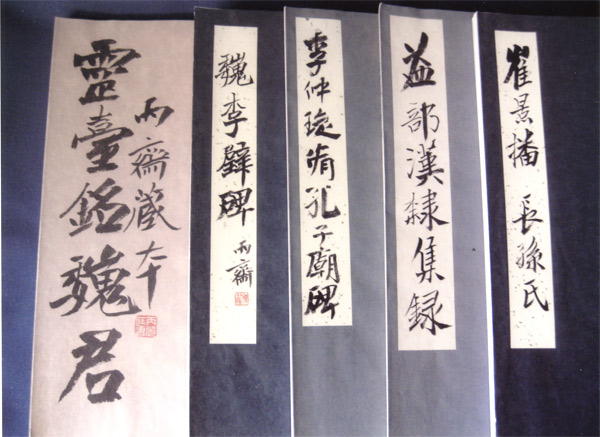 崔景播 長孫氏
益部漢隸集録
李仲璇脩孔子廟碑
魏李璧碑 齋
齋藏本
靈臺銘魏君